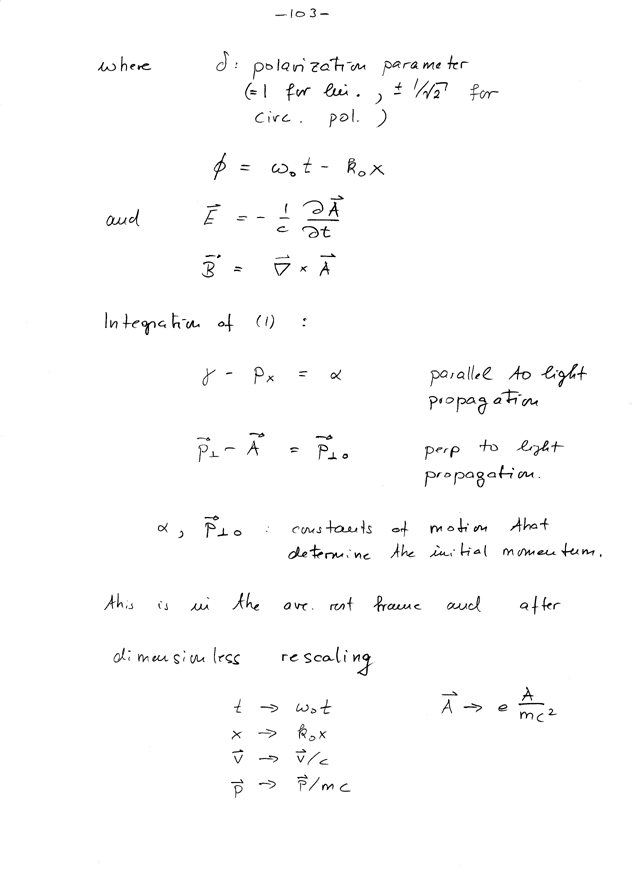 -103-
where δ: polarization parameter
(=1 for lin. , ± 1/√2 for
circ. pol. )
ϕ = ω₀t - k₀x
and E⃗ = - 1/c ∂A⃗/∂t
B⃗ = ∇⃗ × A⃗
Integration of (1) :
γ - pₓ = α parallel to light
propagation
p⃗⊥ - A⃗ = p⃗⊥₀ perp to light
propagation.
α, p⃗⊥₀ : constants of motion that
determine the initial momentum.
this is in the ave. rest frame and after
dimensionless rescaling
t → ω₀t A⃗ → e A/mc²
x → k₀x
v⃗ → v⃗/c
p⃗ → p⃗/mc